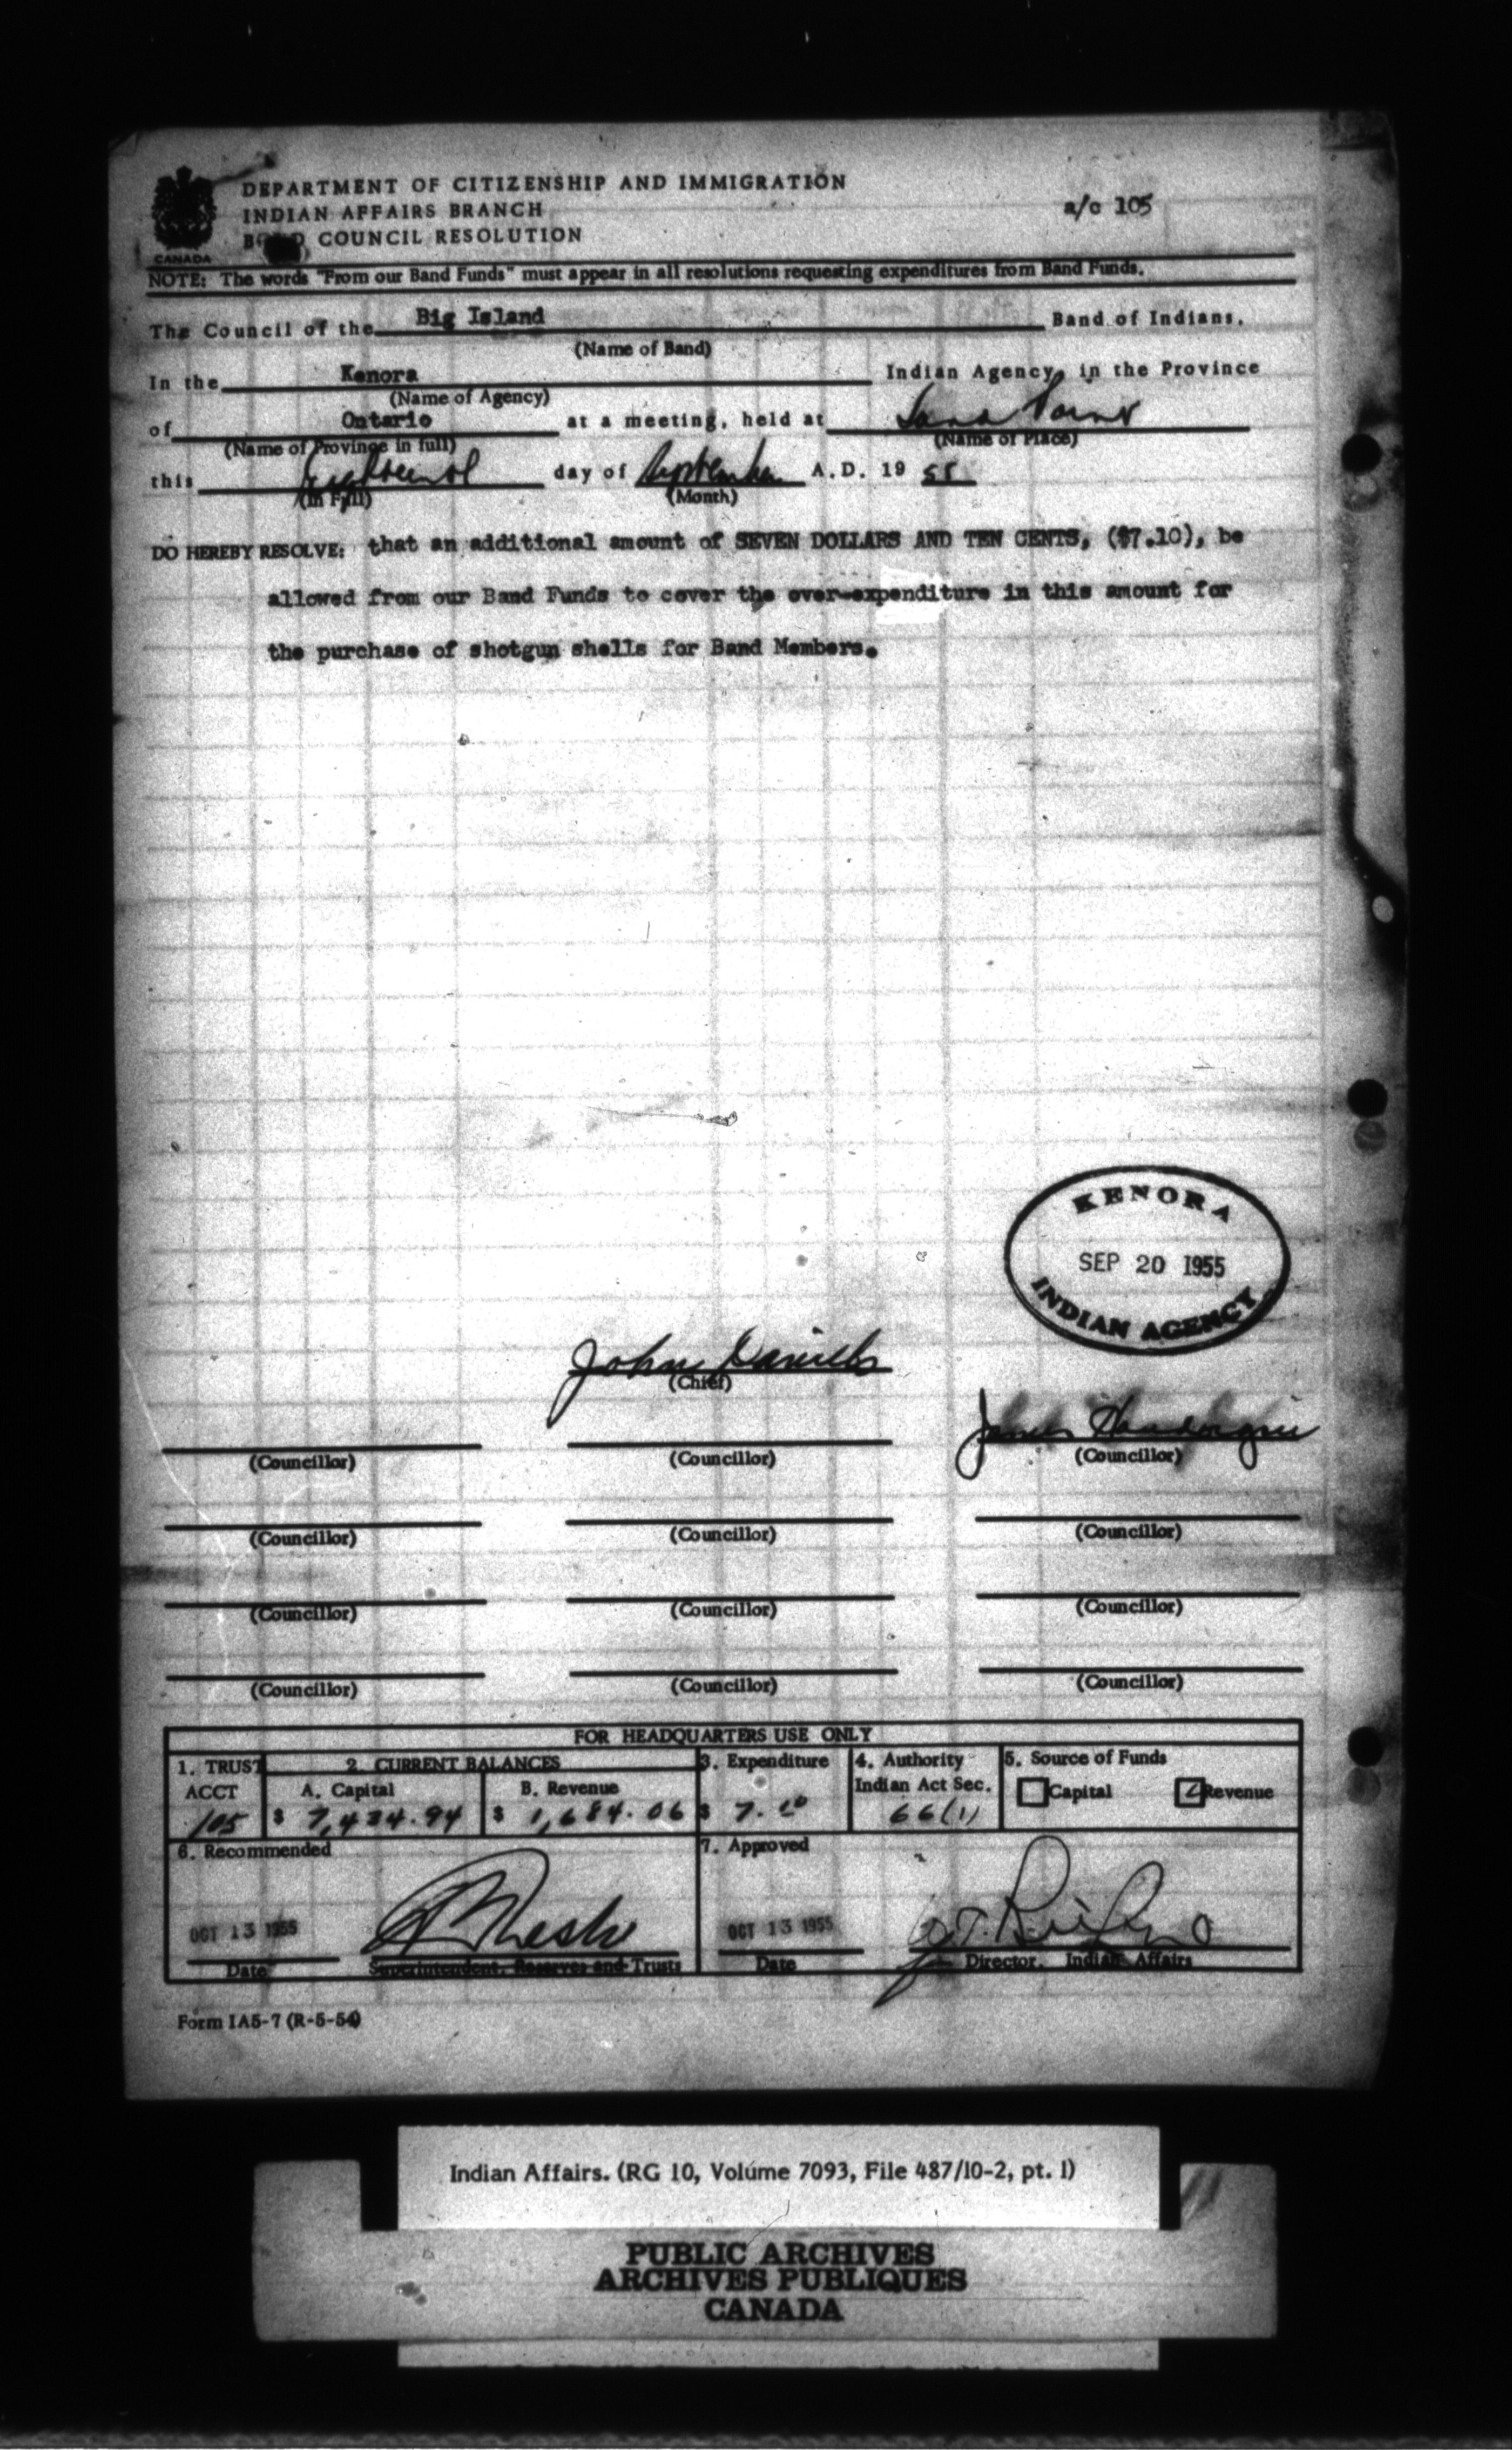 DEPARTMENT OF CITIZENSHIP AND IMMIGRATION
INDIAN AFFAIRS BRANCH
a/c 105
COUNCIL RESOLUTION
CANADA
NOTE: The words "From our Band Funds" must appear in all resolutions requesting expenditures from Band Funds.
The Council of the Big Island Band of Indians,
(Name of Band)
In the Kenora Indian Agency, in the Province
(Name of Agency)
of Ontario at a meeting, held at
(Name of Province in full) (Name of Place)
this day of September A.D. 19 55
(In Full) (Month)
DO HEREBY RESOLVE: that an additional amount of SEVEN DOLLARS AND TEN CENTS, ($7.10), be
allowed from our Band Funds to cover the over-expenditure in this amount for
the purchase of shotgun shells for Band Members.
KENORA
SEP 20 1955
INDIAN AGENCY
John Daniels
(Chief)
James
(Councillor) (Councillor) (Councillor)
(Councillor) (Councillor) (Councillor)
(Councillor) (Councillor) (Councillor)
(Councillor) (Councillor) (Councillor)
FOR HEADQUARTERS USE ONLY
1. TRUST 2. CURRENT BALANCES 3. Expenditure 4. Authority 5. Source of Funds
ACCT A. Capital B. Revenue Indian Act Sec. Capital Revenue
105 $ 7,434.94 $ 1,684.06 $ 7.10 66(1)
6. Recommended 7. Approved
OCT 13 1955 OCT 13 1955
Date Superintendent, Reserves and Trusts Date Director, Indian Affairs
Form IA5-7 (R-5-54)
Indian Affairs. (RG 10, Volume 7093, File 487/10-2, pt. 1)
PUBLIC ARCHIVES
ARCHIVES PUBLIQUES
CANADA